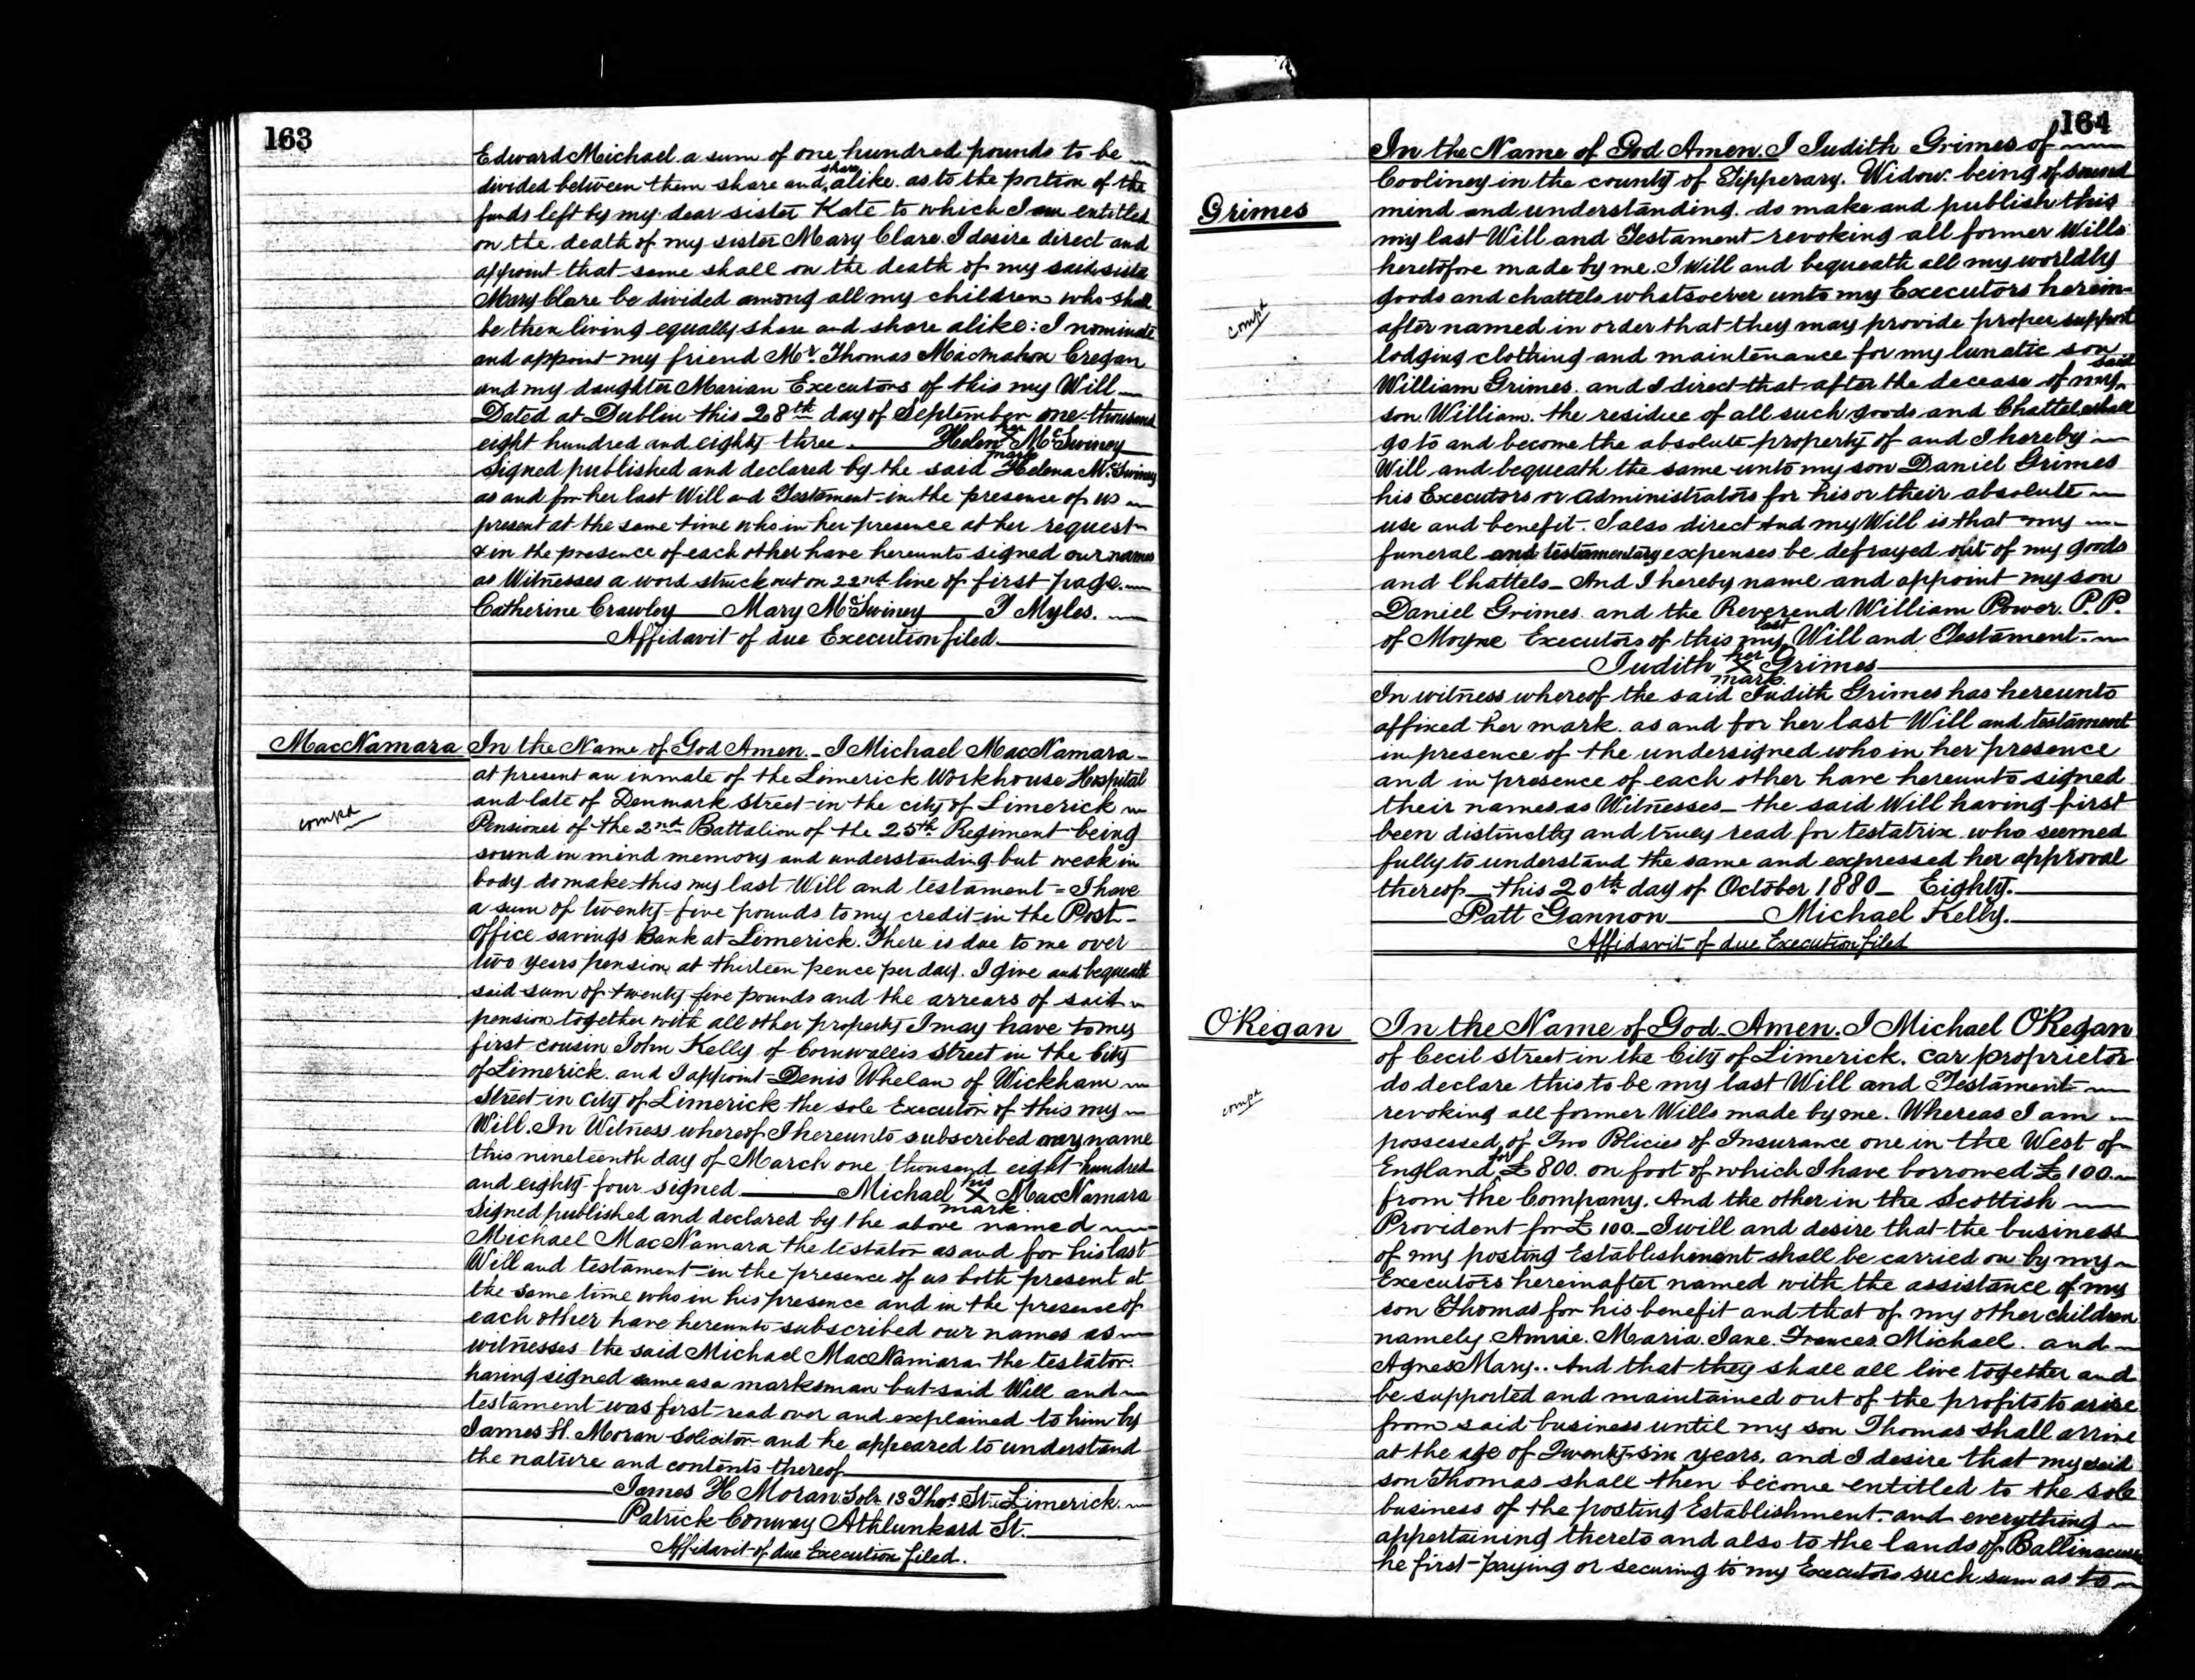 163
Edward Michael a sum of one hundred pounds to be
divided between them share and share alike. as to the portion of the
funds left by my dear sister Kate to which I am entitled
on the death of my sister Mary Clare I desire direct and
appoint that same shall on the death of my said sister
Mary Clare be divided among all my children who shall
be then living equally share and share alike: I nominate
and appoint my friend Mr. Thomas Macmahon Cregan
and my daughter Marian Executors of this my Will
Dated at Dublin this 28th day of September one thousand
eight hundred and eighty three. Helen her mark McSwiney
Signed published and declared by the said Helena McSwiney
as and for her last Will and Testament in the presence of us
present at the same time who in her presence at her request
& in the presence of each other have hereunto signed our names
as Witnesses a word struck out on 22nd line of first page.
Catherine Crawley Mary McSwiney J Myles.
Affidavit of due Execution filed.
MacNamara
compd
In the Name of God Amen. I Michael MacNamara
at present an inmate of the Limerick Workhouse Hospital
and late of Denmark Street in the city of Limerick
Pensioner of the 2nd Battalion of the 25th Regiment being
sound in mind memory and understanding but weak in
body do make this my last Will and testament = I have
a sum of twenty five pounds to my credit in the Post
Office savings Bank at Limerick. There is due to me over
two years pension at thirteen pence per day. I give and bequeath
said sum of twenty five pounds and the arrears of said
pension together with all other property I may have to my
first cousin John Kelly of Cornwallis Street in the City
of Limerick. and I appoint Denis Whelan of Wickham
Street in City of Limerick the sole Executor of this my
Will. In Witness whereof I hereunto subscribed my name
this nineteenth day of March one thousand eight hundred
and eighty four signed Michael his X mark MacNamara
Signed published and declared by the above named
Michael MacNamara the testator as and for his last
Will and testament in the presence of us both present at
the same time who in his presence and in the presence of
each other have hereunto subscribed our names as
witnesses the said Michael MacNamara the testator
having signed same as a marksman but said Will and
testament was first read over and explained to him by
James H. Moran Solicitor and he appeared to understand
the nature and contents thereof
James H Moran Solr 13 Thos. St. Limerick.
Patrick Conway Athlunkard St.
Affidavit of due Execution filed.
164
Grimes
compd
In the Name of God Amen. I Judith Grimes of
Cooliney in the county of Tipperary. Widow. being of sound
mind and understanding. do make and publish this
my last Will and Testament revoking all former Wills
heretofore made by me. I Will and bequeath all my worldly
goods and chattels whatsoever unto my Executors herein-
after named in order that they may provide proper support
lodging clothing and maintenance for my lunatic son
William Grimes. and I direct that after the decease of my said
son William. the residue of all such goods and Chattels shall
go to and become the absolute property of and I hereby
Will and bequeath the same unto my son Daniel Grimes
his Executors or Administrators for his or their absolute
use and benefit. I also direct and my Will is that my
funeral and testamentary expenses be defrayed out of my goods
and Chattels. And I hereby name and appoint my son
Daniel Grimes. and the Reverend William Power. P.P.
of Moyne Executors of this my last Will and Testament.
Judith her X mark Grimes
In witness whereof the said Judith Grimes has hereunto
affixed her mark. as and for her last Will and testament
in presence of the undersigned who in her presence
and in presence of each other have hereunto signed
their names as Witnesses the said Will having first
been distinctly and truly read for testatrix who seemed
fully to understand the same and expressed her approval
thereof this 20th day of October 1880 Eighty.
Patt Gannon Michael Kelly.
Affidavit of due Execution filed
O'Regan
compd
In the Name of God. Amen. I Michael O'Regan
of Cecil Street in the City of Limerick. car proprietor
do declare this to be my last Will and Testament
revoking all former Wills made by me. Whereas I am
possessed of Two Policies of Insurance one in the West of
England for £800. on foot of which I have borrowed £100.
from the Company. And the other in the Scottish
Provident for £100. I will and desire that the business
of my posting Establishment shall be carried on by my
Executors hereinafter named with the assistance of my
son Thomas for his benefit and that of my other children
namely Annie. Maria. Jane. Frances. Michael. and
Agnes Mary.. And that they shall all live together and
be supported and maintained out of the profits to arise
from said business until my son Thomas shall arrive
at the age of Twenty-six years. and I desire that my said
son Thomas shall then become entitled to the sole
business of the posting Establishment. and everything
appertaining thereto and also to the lands of Ballinacurra
he first paying or securing to my Executors such sum as to